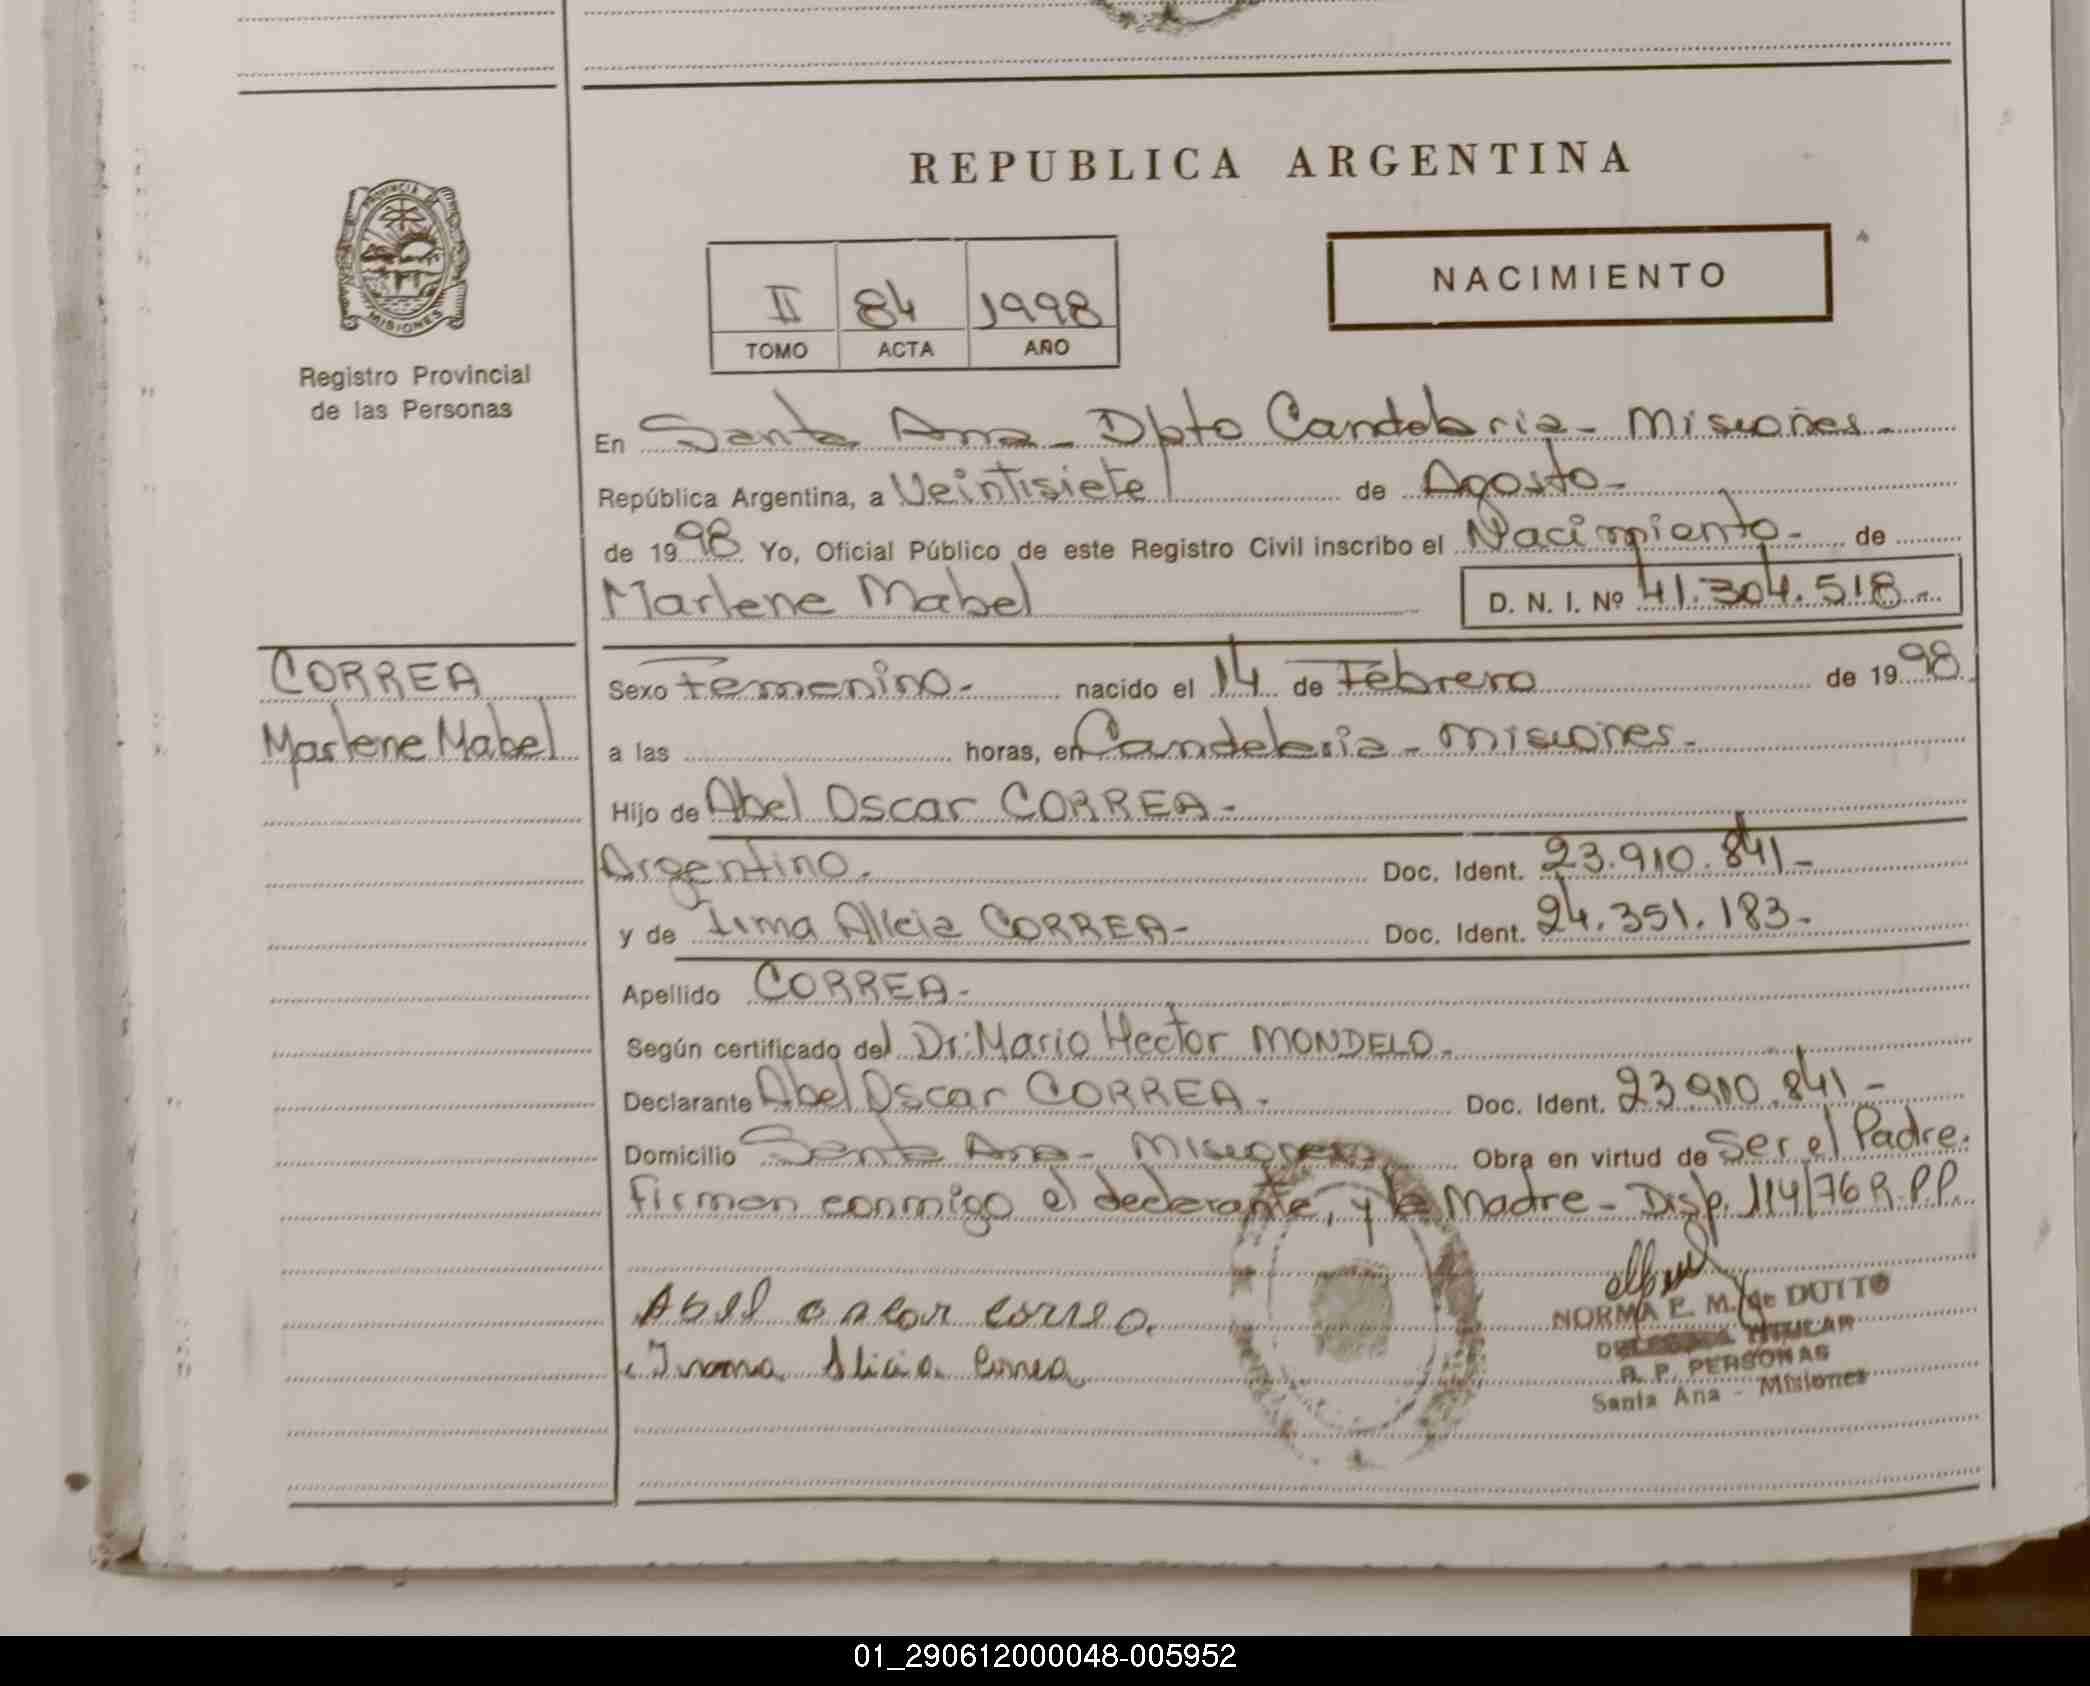 REPUBLICA ARGENTINA
PROVINCIA
MISIONES
Registro Provincial
de las Personas
II 84 1998
TOMO ACTA AÑO
NACIMIENTO
En Santa Ana - Dpto Candelaria - Misiones -
República Argentina, a Veintisiete de Agosto -
de 1998 Yo, Oficial Público de este Registro Civil inscribo el Nacimiento - de
Marlene Mabel D. N. I. Nº 41.304.518 -
CORREA
Marlene Mabel
Sexo Femenino - nacido el 14 de Febrero de 1998
a las horas, en Candelaria - Misiones -
Hijo de Abel Oscar CORREA -
Argentino - Doc. Ident. 23.910.841 -
y de Irma Alicia CORREA - Doc. Ident. 24.351.183 -
Apellido CORREA -
Según certificado del Dr. Mario Hector MONDELO -
Declarante Abel Oscar CORREA - Doc. Ident. 23.910.841 -
Domicilio Santa Ana - Misiones Obra en virtud de Ser el Padre.
Firman conmigo el declarante, y la Madre - Disp. 114/76 R.P.P.
Abel oscar correa
Irma Alicia Correa
NORMA E. M. de DUTTO
TITULAR
R. P. PERSONAS
Santa Ana - Misiones
01_290612000048-005952